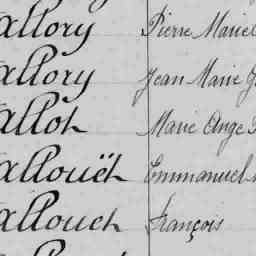 allory Pierre Marie
allory Jean Marie
allot Marie Ange
allouët Emmanuel
allouet François